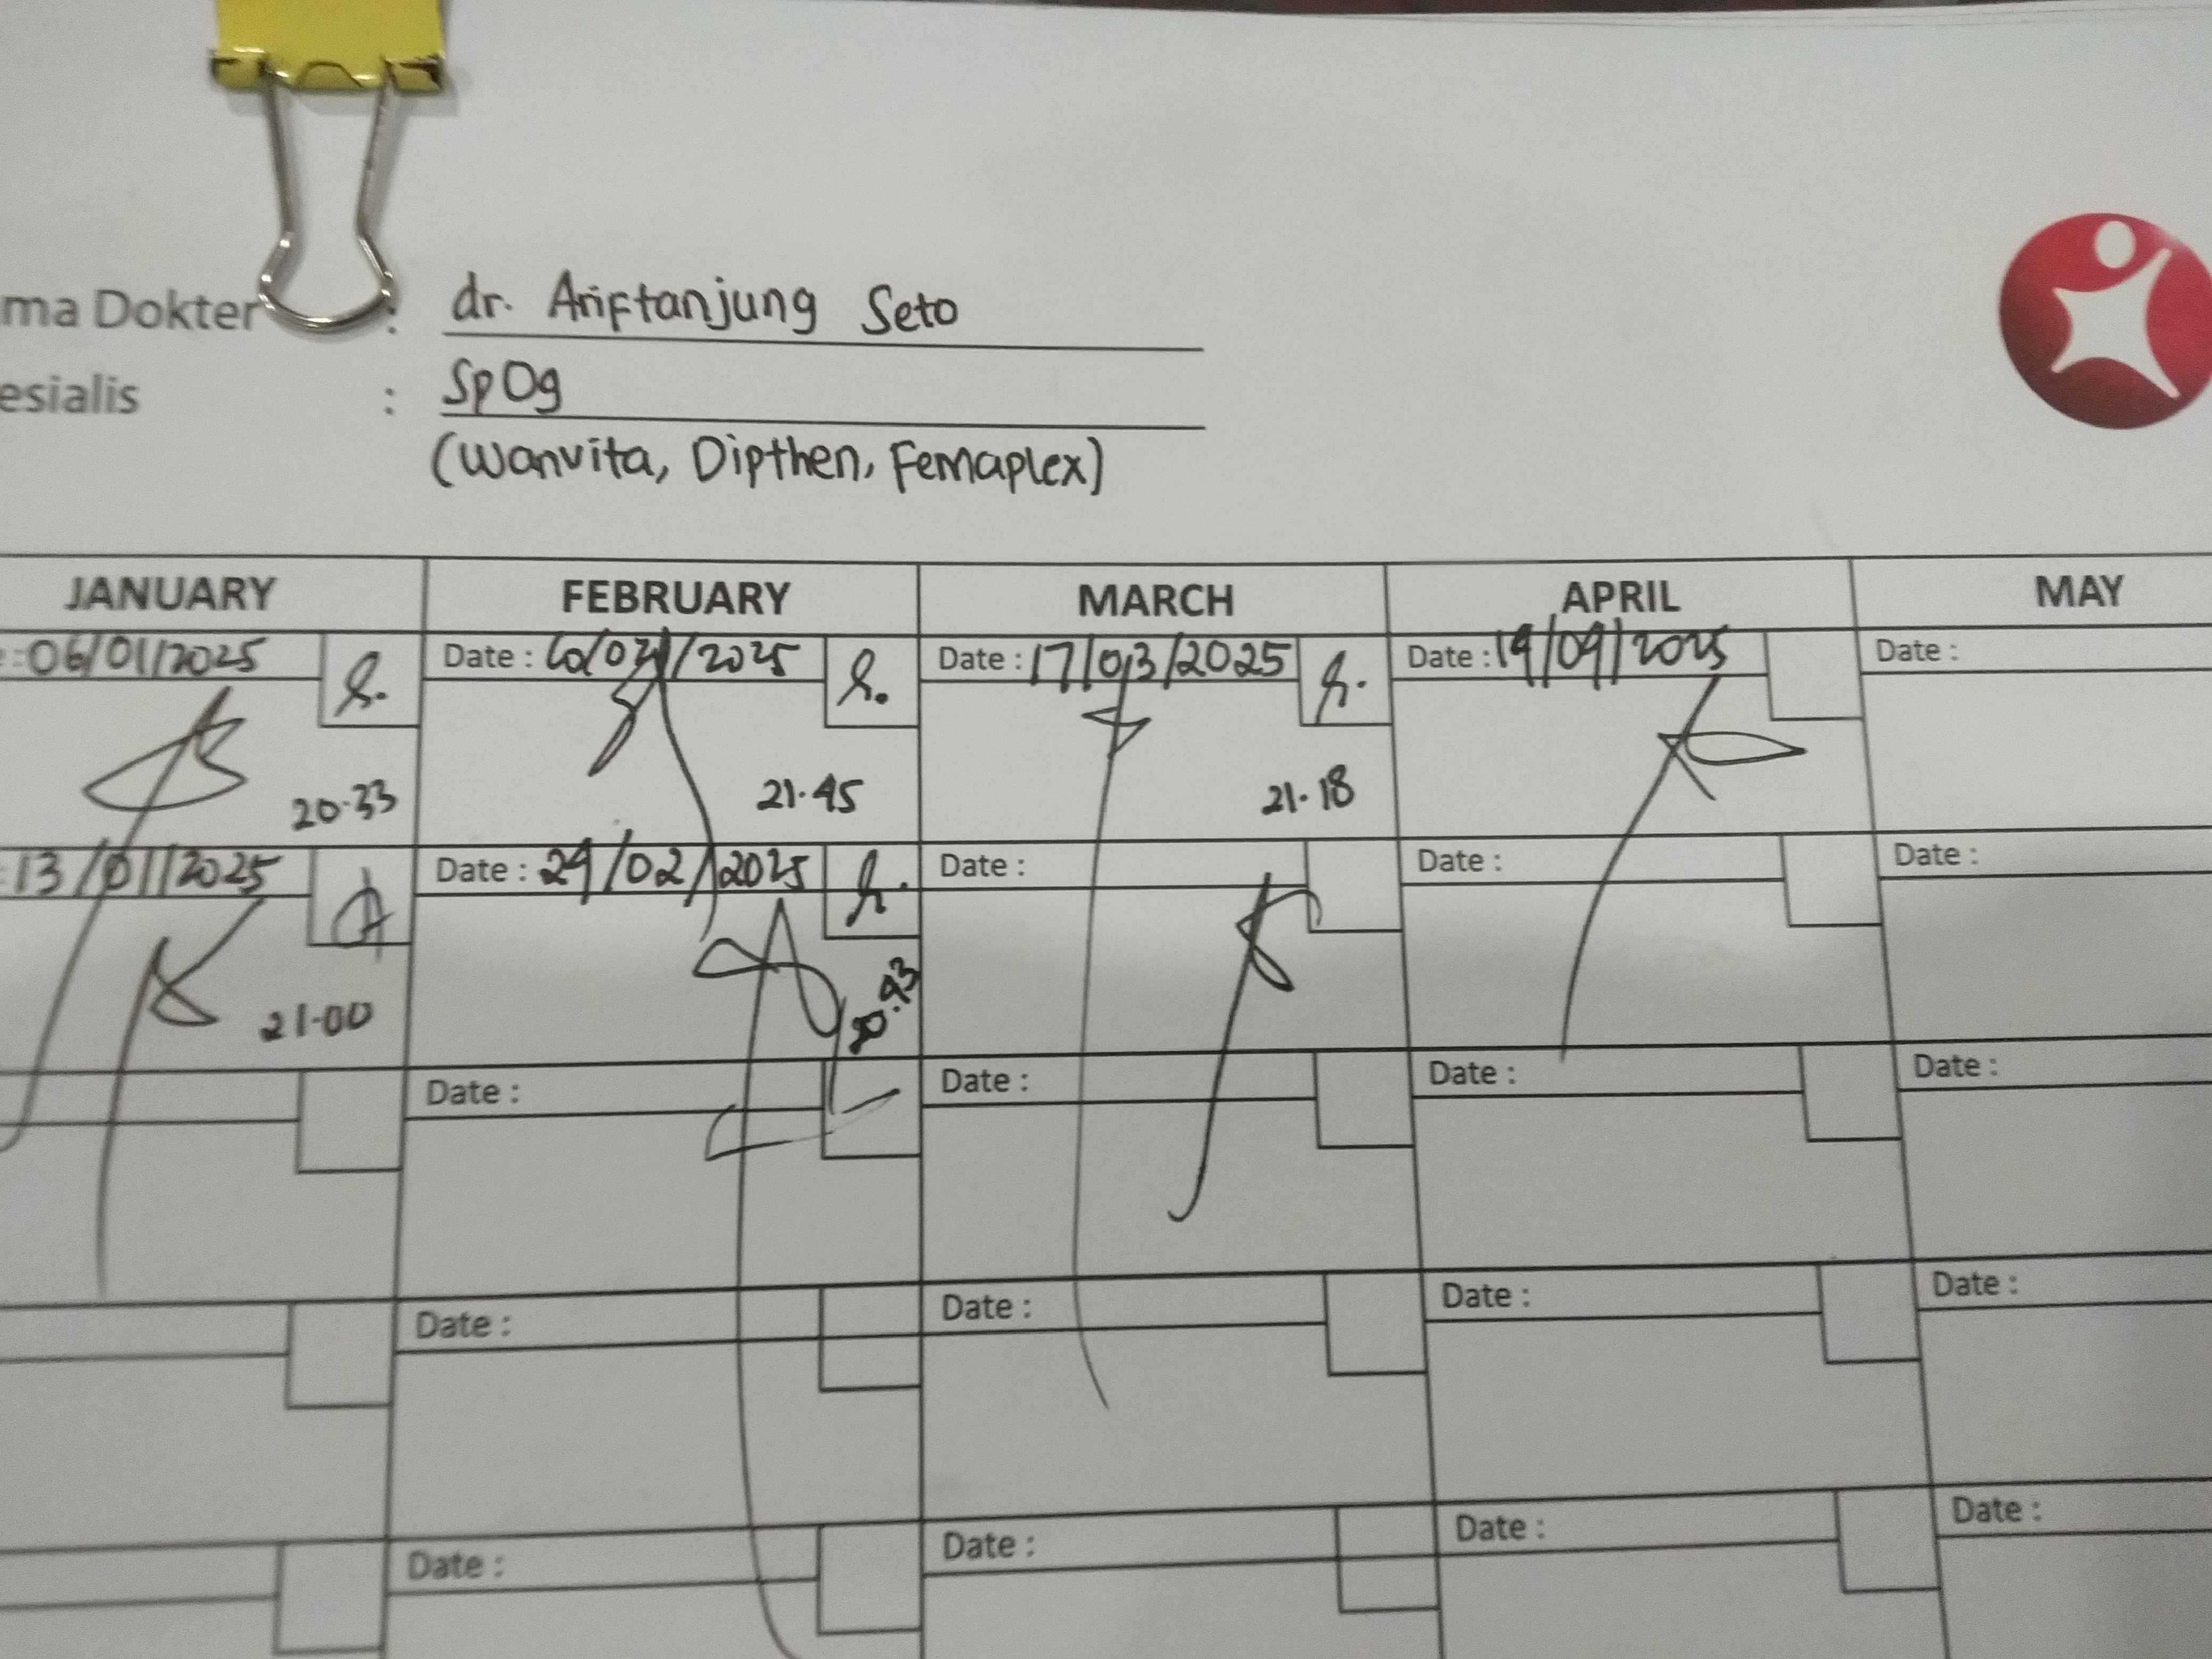 ma Dokter : dr. Ariftanjung Seto
esialis : SpOg
(Wanvita, Dipthen, Femaplex)
JANUARY FEBRUARY MARCH APRIL MAY
: 06/01/2025 Date : /2025 Date : 17/03/2025 Date : Date :
20.33 21.45 21.18
: 13/01/2025 Date : 24/02/2025 Date : Date : Date :
21.00
Date : Date : Date : Date :
Date : Date : Date : Date :
Date : Date : Date : Date :